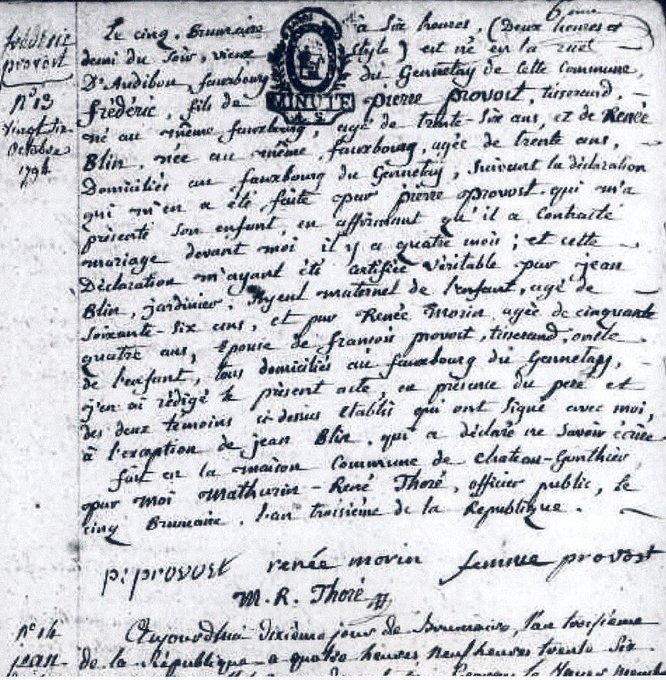 6eme
frédéric
provost
N°13
vingt six
Octobre
1794.
Le cinq, Brumaire à Six heures, (Deux heures et
demi du Soir, vieux Style) est né en la rue
D'Audibon, fauxbourg du Gennetay de cette Commune,
frédéric, fils de pierre provost, tisserand,
MINUTE
né au même fauxbourg, agé de trente-six ans, et de Renée
Blin, née au même fauxbourg, agée de trente ans,
Domiciliés au fauxbourg du Gennetay, Suivant la déclaration
qui m'en a été faite par pierre provost, qui m'a
présenté Son enfant, en affirmant qu'il a Contracté
mariage devant moi il y a quatre mois ; et cette
Déclaration m'ayant été attestée véritable par jean
Blin, jardinier, ayeul maternel de l'enfant, agé de
Soixante-six ans, et par Renée Morin, agée de cinquante
quatre ans, épouse de fransois provost, tisserand, oncle
de l'enfant, tous domiciliés au fauxbourg du Gennetay,
j'en ai rédigé le présent acte, en présence du pere et
des deux temoins ci-dessus etablis qui ont Signé avec moi,
à l'exception de jean Blin, qui a déclaré ne Savoir écrire
fait en la maison Commune de Chateau-Gonthier,
par moi Mathurin-René Thoré, officier public, le
cinq Brumaire, l'an troisième de la République.
p: provost renée morin femme provost
M. R. Thoré
N° 14
jean
Aujourdhui dixième jour de Brumaire, l'an troisième
de la République a quatre heures neuf heures trente Six